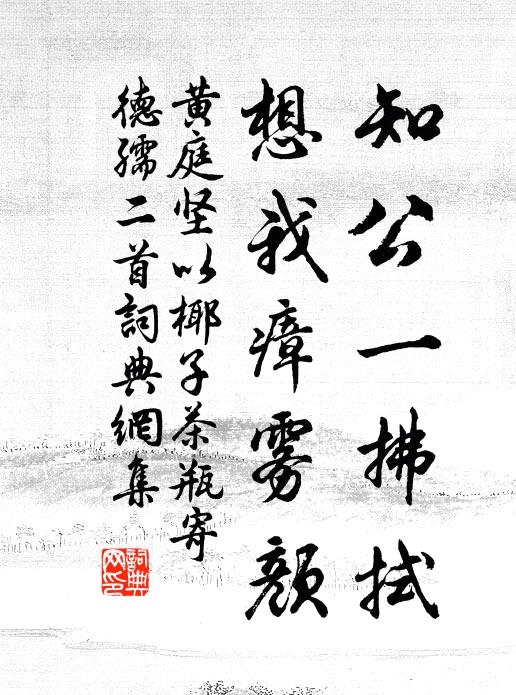 知公一拂拭
想我瘴雾顏
黄庭坚以椰子茶瓶寄
德孺二首詞典網集
詞典
网印